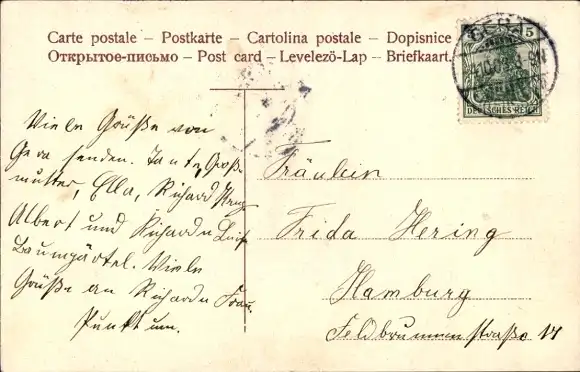 Carte postale – Postkarte – Cartolina postale – Dopisnice
Открытое-письмо – Post card – Levelező-Lap – Briefkaart.
GERA
5
DEUTSCHES REICH
Viele Grüße von
Gera senden. Tante, Groß-
mutter, Ella, Richard
Albert und Richard u
Baumgärtel. Viele
Grüße an Richard u
Punktum.
Fräulein
Frida Hering
Hamburg
Feldbrunnenstraße 17